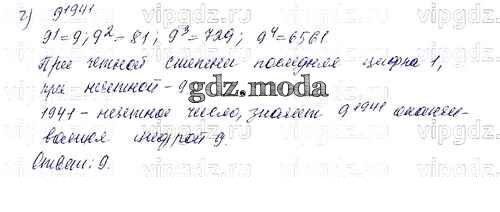 г) 9¹⁹⁴¹
9¹=9; 9²=81; 9³=729; 9⁴=6561
При четной степени последняя цифра 1,
при нечетной - 9
gdz.moda
1941 - нечетное число, значит 9¹⁹⁴¹ оканчи-
вается цифрой 9.
Ответ: 9.
vipgdz